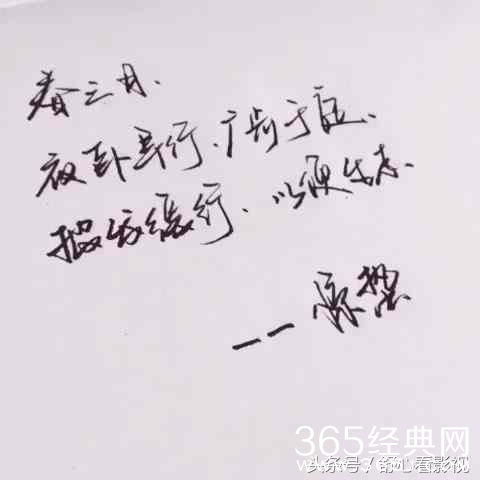 春三月、
夜卧早行、广步于庭、
披发缓行、以便生志、
——
365经典网
头条号 / 心看影视